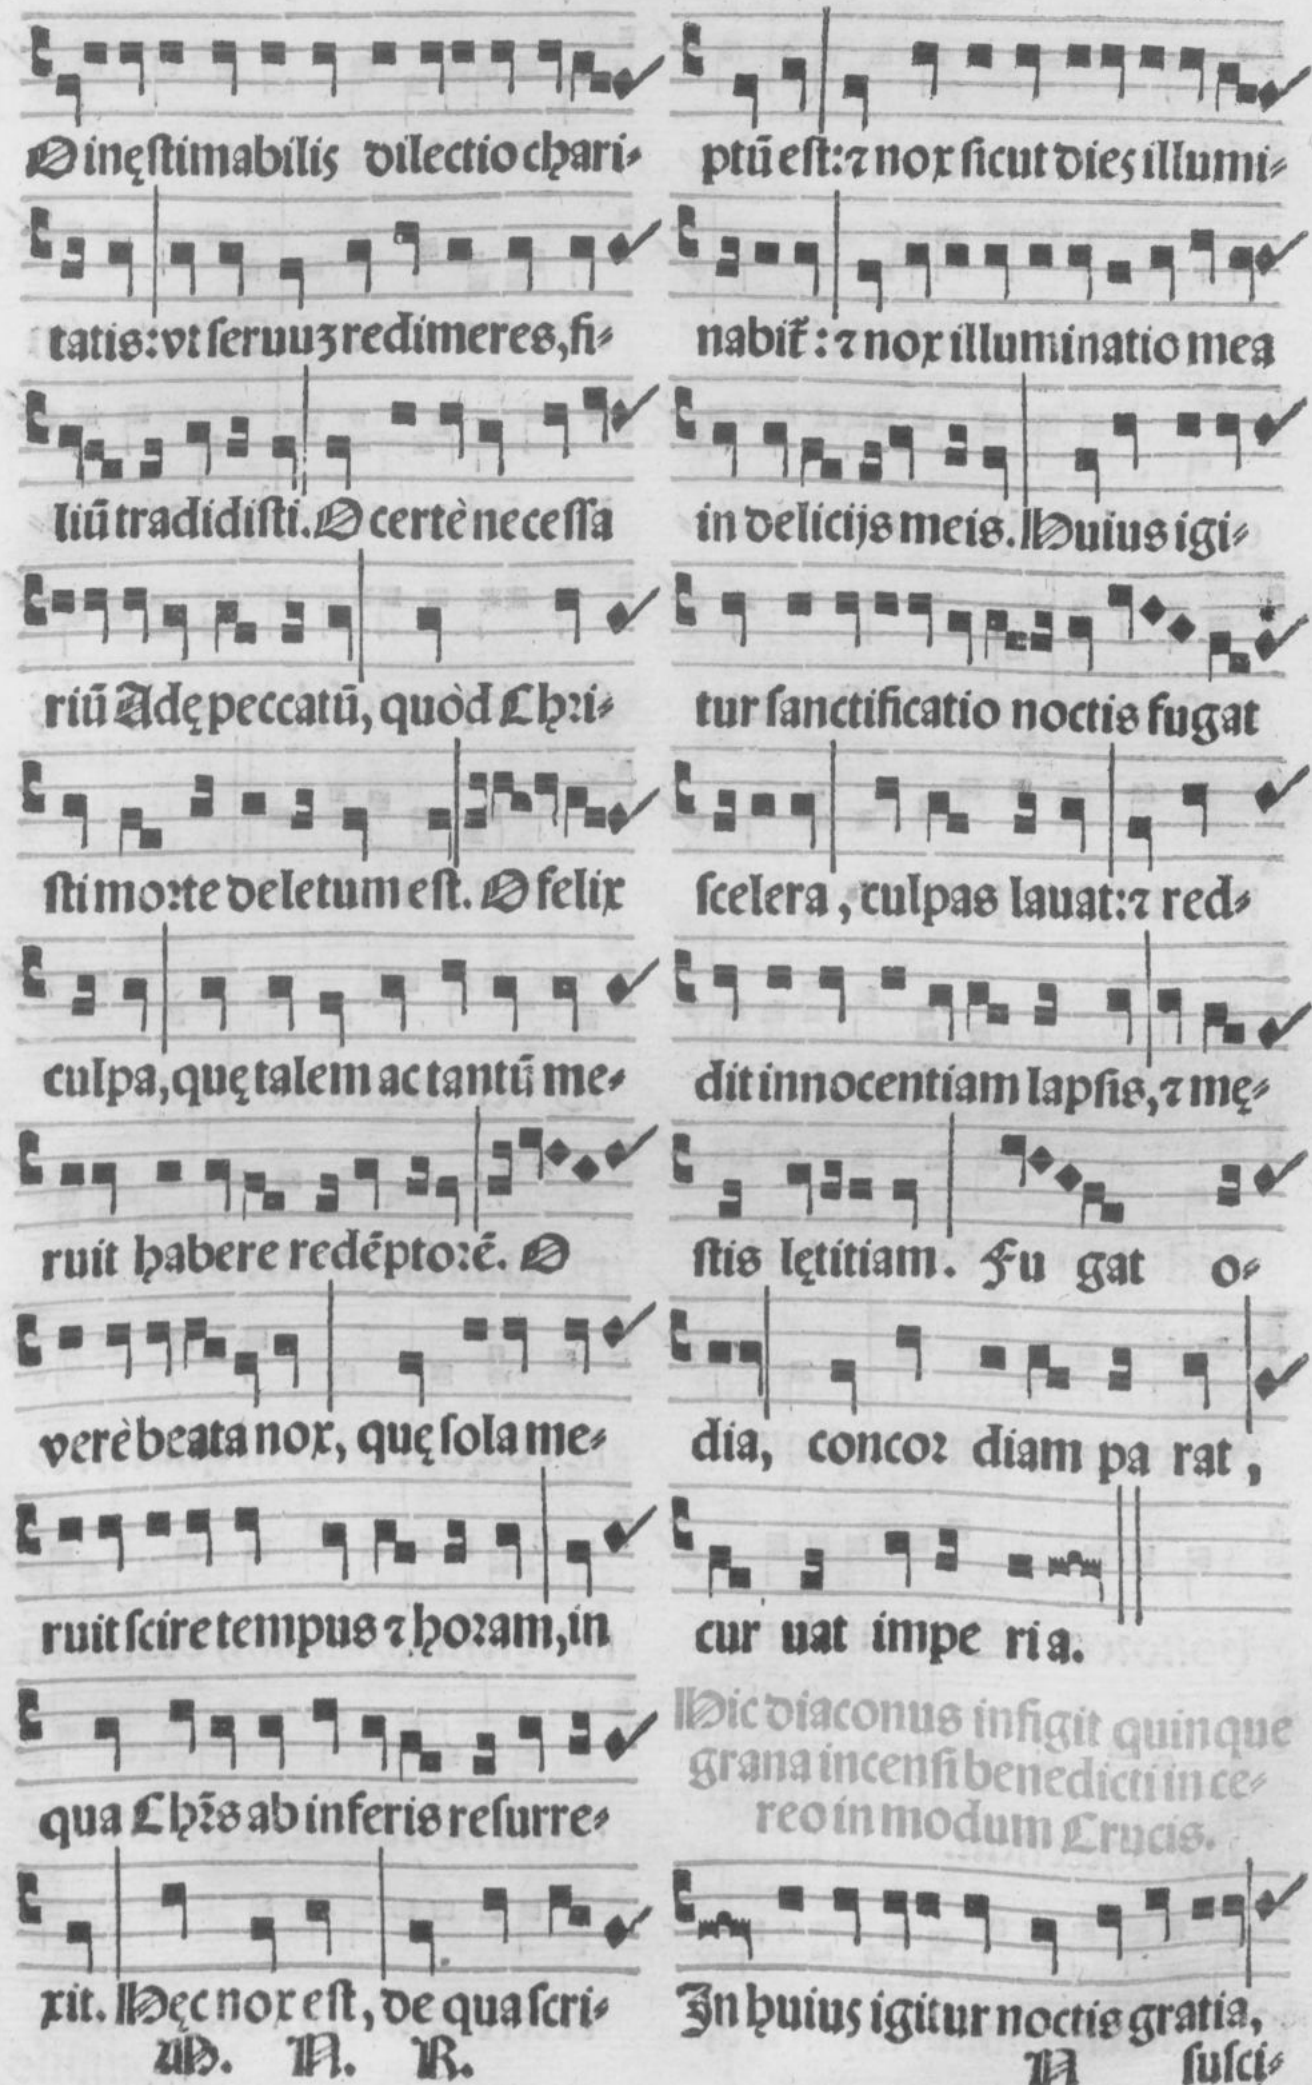 O inęſtimabilis dilectio chari-
tatis: vt ſeruuʒ redimeres, fi-
liū tradidiſti. O certè neceſſa
riū Adę peccatū, quòd Chꝛi-
ſti moꝛte deletum eſt. O felix
culpa, quę talem ac tantū me-
ruit habere redēptoꝛē. O
verè beata nox, quę ſola me-
ruit ſcire tempus ⁊ hoꝛam, in
qua Chꝛ̄s ab inferis reſurre-
xit. Hęc nox eſt, de qua ſcri-
M. N. R.
ptū eſt: ⁊ nox ſicut dies illumi-
nabit̄: ⁊ nox illuminatio mea
in delicijs meis. Huius igi-
tur ſanctificatio noctis fugat
ſcelera, culpas lauat: ⁊ red-
dit innocentiam lapſis, ⁊ mę-
ſtis lętitiam. Fu gat o-
dia, concoꝛ diam pa rat,
cur uat impe ria.
Hic diaconus infigit quinque
grana incenſi benedicti in ce-
reo in modum Crucis.
In huius igitur noctis gratia,
N ſuſci-